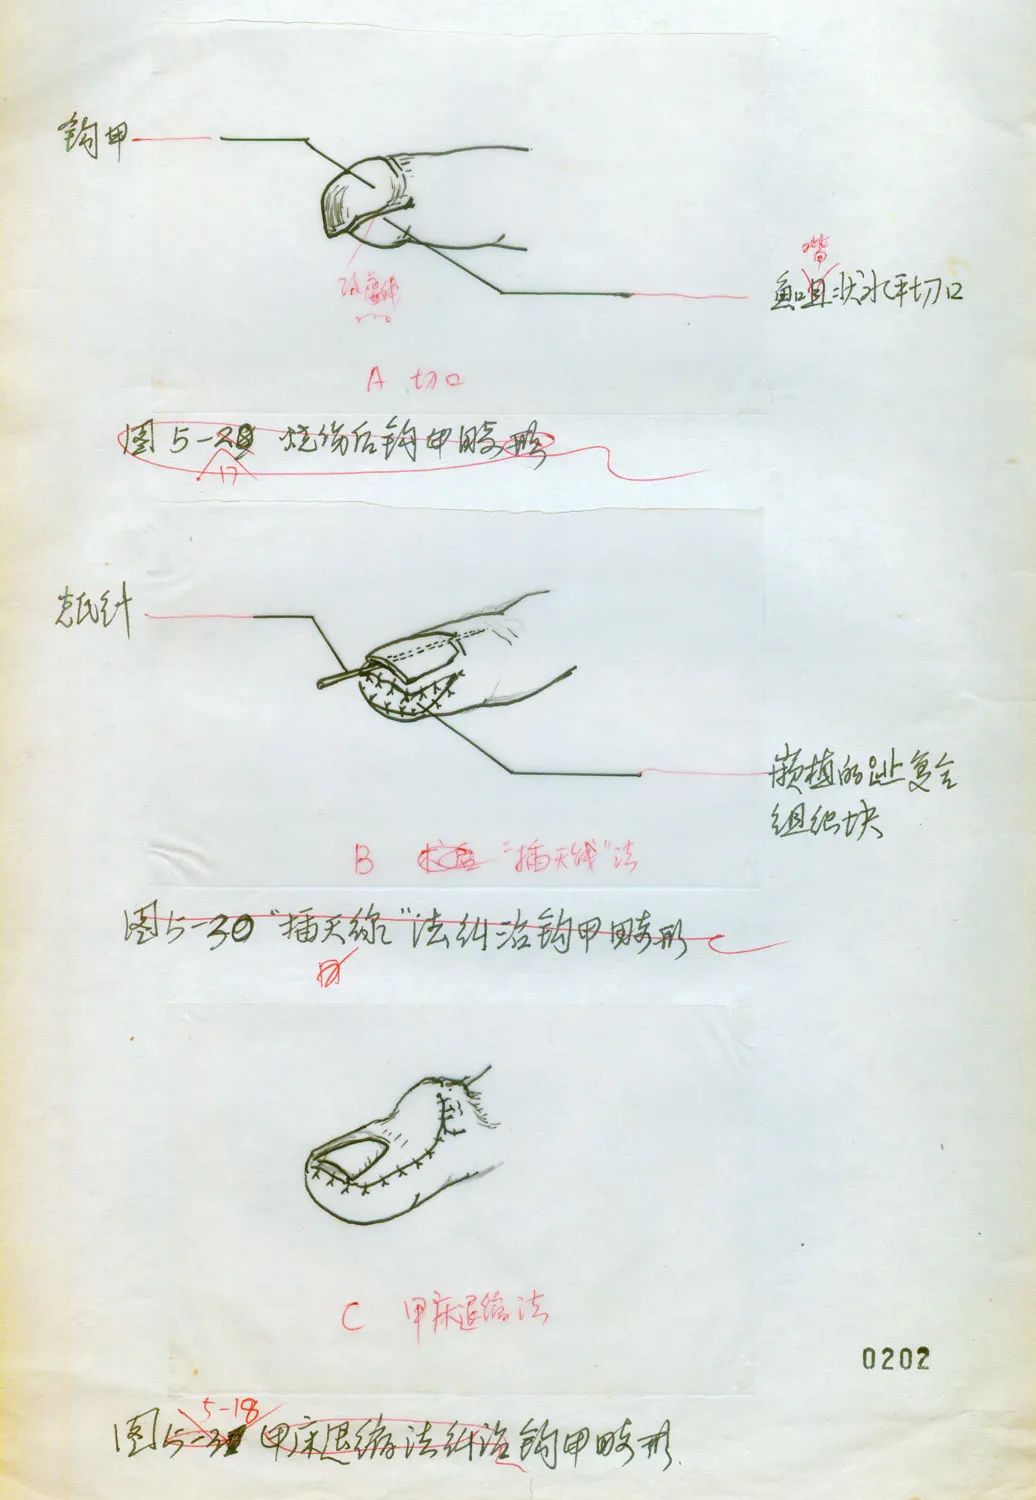 钩甲
嘴
鱼咀状水平切口
A 切口
图5-29 烧伤后钩甲畸形
17
克氏针
嵌植的趾复合
组织块
B "插天线"法
图5-30 "插天线"法纠治钩甲畸形
C 甲床退缩法
0202
5-18
图5-31 甲床退缩法纠治钩甲畸形